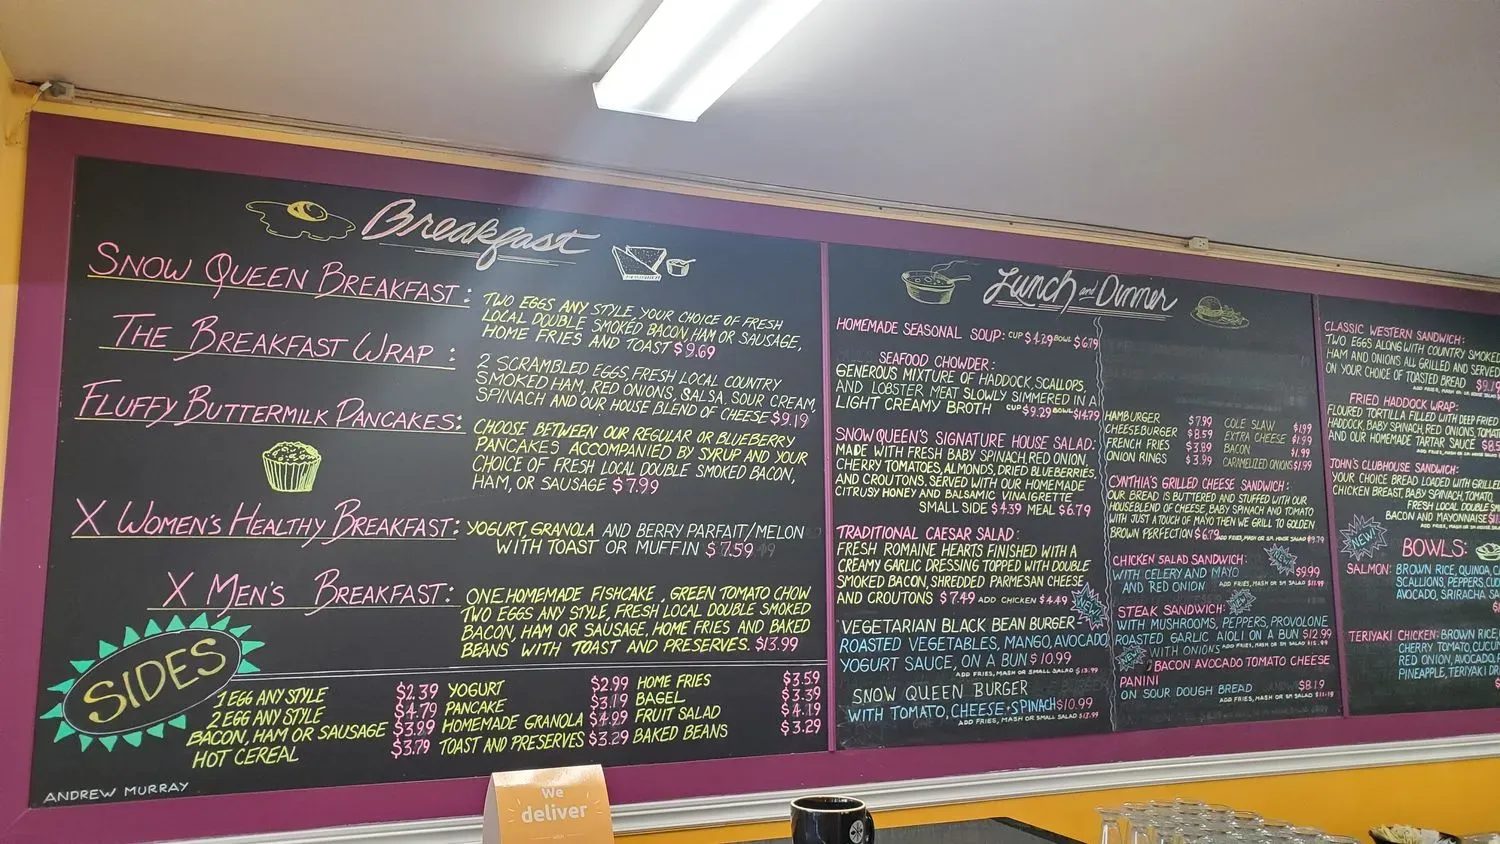 Breakfast
SNOW QUEEN BREAKFAST:
TWO EGGS ANY STYLE, YOUR CHOICE OF FRESH
LOCAL DOUBLE SMOKED BACON, HAM OR SAUSAGE,
HOME FRIES AND TOAST $9.69
THE BREAKFAST WRAP:
2 SCRAMBLED EGGS, FRESH LOCAL COUNTRY
SMOKED HAM, RED ONIONS, SALSA, SOUR CREAM,
SPINACH AND OUR HOUSE BLEND OF CHEESE $9.19
FLUFFY BUTTERMILK PANCAKES:
CHOOSE BETWEEN OUR REGULAR OR BLUEBERRY
PANCAKES ACCOMPANIED BY SYRUP AND YOUR
CHOICE OF FRESH LOCAL DOUBLE SMOKED BACON,
HAM, OR SAUSAGE $7.99
X WOMEN'S HEALTHY BREAKFAST:
YOGURT, GRANOLA AND BERRY PARFAIT/MELON
WITH TOAST OR MUFFIN $7.59
X MEN'S BREAKFAST:
ONE HOMEMADE FISHCAKE, GREEN TOMATO CHOW
TWO EGGS ANY STYLE, FRESH LOCAL DOUBLE SMOKED
BACON, HAM OR SAUSAGE, HOME FRIES AND BAKED
BEANS WITH TOAST AND PRESERVES. $13.99
SIDES
1 EGG ANY STYLE $2.39
2 EGG ANY STYLE $4.79
BACON, HAM OR SAUSAGE $3.99
HOT CEREAL $3.79
YOGURT $2.99
PANCAKE $3.19
HOMEMADE GRANOLA $4.29
TOAST AND PRESERVES $3.29
HOME FRIES $3.59
BAGEL $3.39
FRUIT SALAD $4.19
BAKED BEANS $3.29
ANDREW MURRAY
Lunch and Dinner
HOMEMADE SEASONAL SOUP: CUP $4.29 BOWL $6.79
SEAFOOD CHOWDER:
GENEROUS MIXTURE OF HADDOCK, SCALLOPS,
AND LOBSTER MEAT SLOWLY SIMMERED IN A
LIGHT CREAMY BROTH CUP $9.29 BOWL $14.79
SNOW QUEEN'S SIGNATURE HOUSE SALAD:
MADE WITH FRESH BABY SPINACH, RED ONION,
CHERRY TOMATOES, ALMONDS, DRIED BLUEBERRIES,
AND CROUTONS. SERVED WITH OUR HOMEMADE
CITRUSY HONEY AND BALSAMIC VINAIGRETTE
SMALL SIDE $4.39 MEAL $6.79
TRADITIONAL CAESAR SALAD:
FRESH ROMAINE HEARTS FINISHED WITH A
CREAMY GARLIC DRESSING TOPPED WITH DOUBLE
SMOKED BACON, SHREDDED PARMESAN CHEESE
AND CROUTONS $7.49 ADD CHICKEN $4.49
NEW!
VEGETARIAN BLACK BEAN BURGER-
ROASTED VEGETABLES, MANGO, AVOCADO
YOGURT SAUCE, ON A BUN $10.99
ADD FRIES, MASH OR SMALL SALAD $13.99
SNOW QUEEN BURGER
WITH TOMATO, CHEESE + SPINACH $10.99
ADD FRIES, MASH OR SMALL SALAD $13.99
HAMBURGER $7.90
CHEESEBURGER $8.59
FRENCH FRIES $3.89
ONION RINGS $3.99
COLE SLAW $1.99
EXTRA CHEESE $1.99
BACON $1.99
CARAMELIZED ONIONS $1.99
CYNTHIA'S GRILLED CHEESE SANDWICH:
OUR BREAD IS BUTTERED AND STUFFED WITH OUR
HOUSEBLEND OF CHEESE, BABY SPINACH AND TOMATO
WITH JUST A TOUCH OF MAYO THEN WE GRILL TO GOLDEN
BROWN PERFECTION $6.79 ADD FRIES, MASH OR SM. HOUSE SALAD $9.79
CHICKEN SALAD SANDWICH: NEW!
WITH CELERY AND MAYO $9.99
AND RED ONION ADD FRIES, MASH OR SM SALAD $11.99
STEAK SANDWICH: NEW!
WITH MUSHROOMS, PEPPERS, PROVOLONE
ROASTED GARLIC AIOLI ON A BUN $12.99
WITH ONIONS ADD FRIES, MASH OR SM SALAD
NEW! BACON AVOCADO TOMATO CHEESE
PANINI
ON SOUR DOUGH BREAD $8.19
ADD FRIES, MASH OR SM SALAD $11.19
CLASSIC WESTERN SANDWICH:
TWO EGGS ALONG WITH COUNTRY SMOKED
HAM AND ONIONS ALL GRILLED AND SERVED
ON YOUR CHOICE OF TOASTED BREAD
FRIED HADDOCK WRAP:
FLOURED TORTILLA FILLED WITH DEEP FRIED
HADDOCK, BABY SPINACH, RED ONIONS,
AND OUR HOMEMADE TARTAR SAUCE
JOHN'S CLUBHOUSE SANDWICH:
YOUR CHOICE BREAD LOADED WITH GRILLED
CHICKEN BREAST, BABY SPINACH, TOMATO,
FRESH LOCAL DOUBLE
BACON AND MAYONNAISE
NEW!
BOWLS:
SALMON: BROWN RICE, QUINOA,
SCALLIONS, PEPPERS,
AVOCADO, SRIRACHA
TERIYAKI CHICKEN: BROWN RICE,
CHERRY TOMATO,
RED ONION, AVOCADO,
PINEAPPLE, TERIYAKI
We
deliver